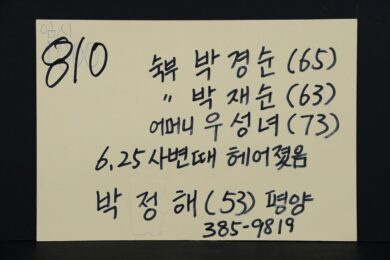 임시
810
숙부 박경순(65)
〃 박재순(63)
어머니 우성녀(73)
6.25 사변때 헤어졌음
박정해(53) 평양
385-9819